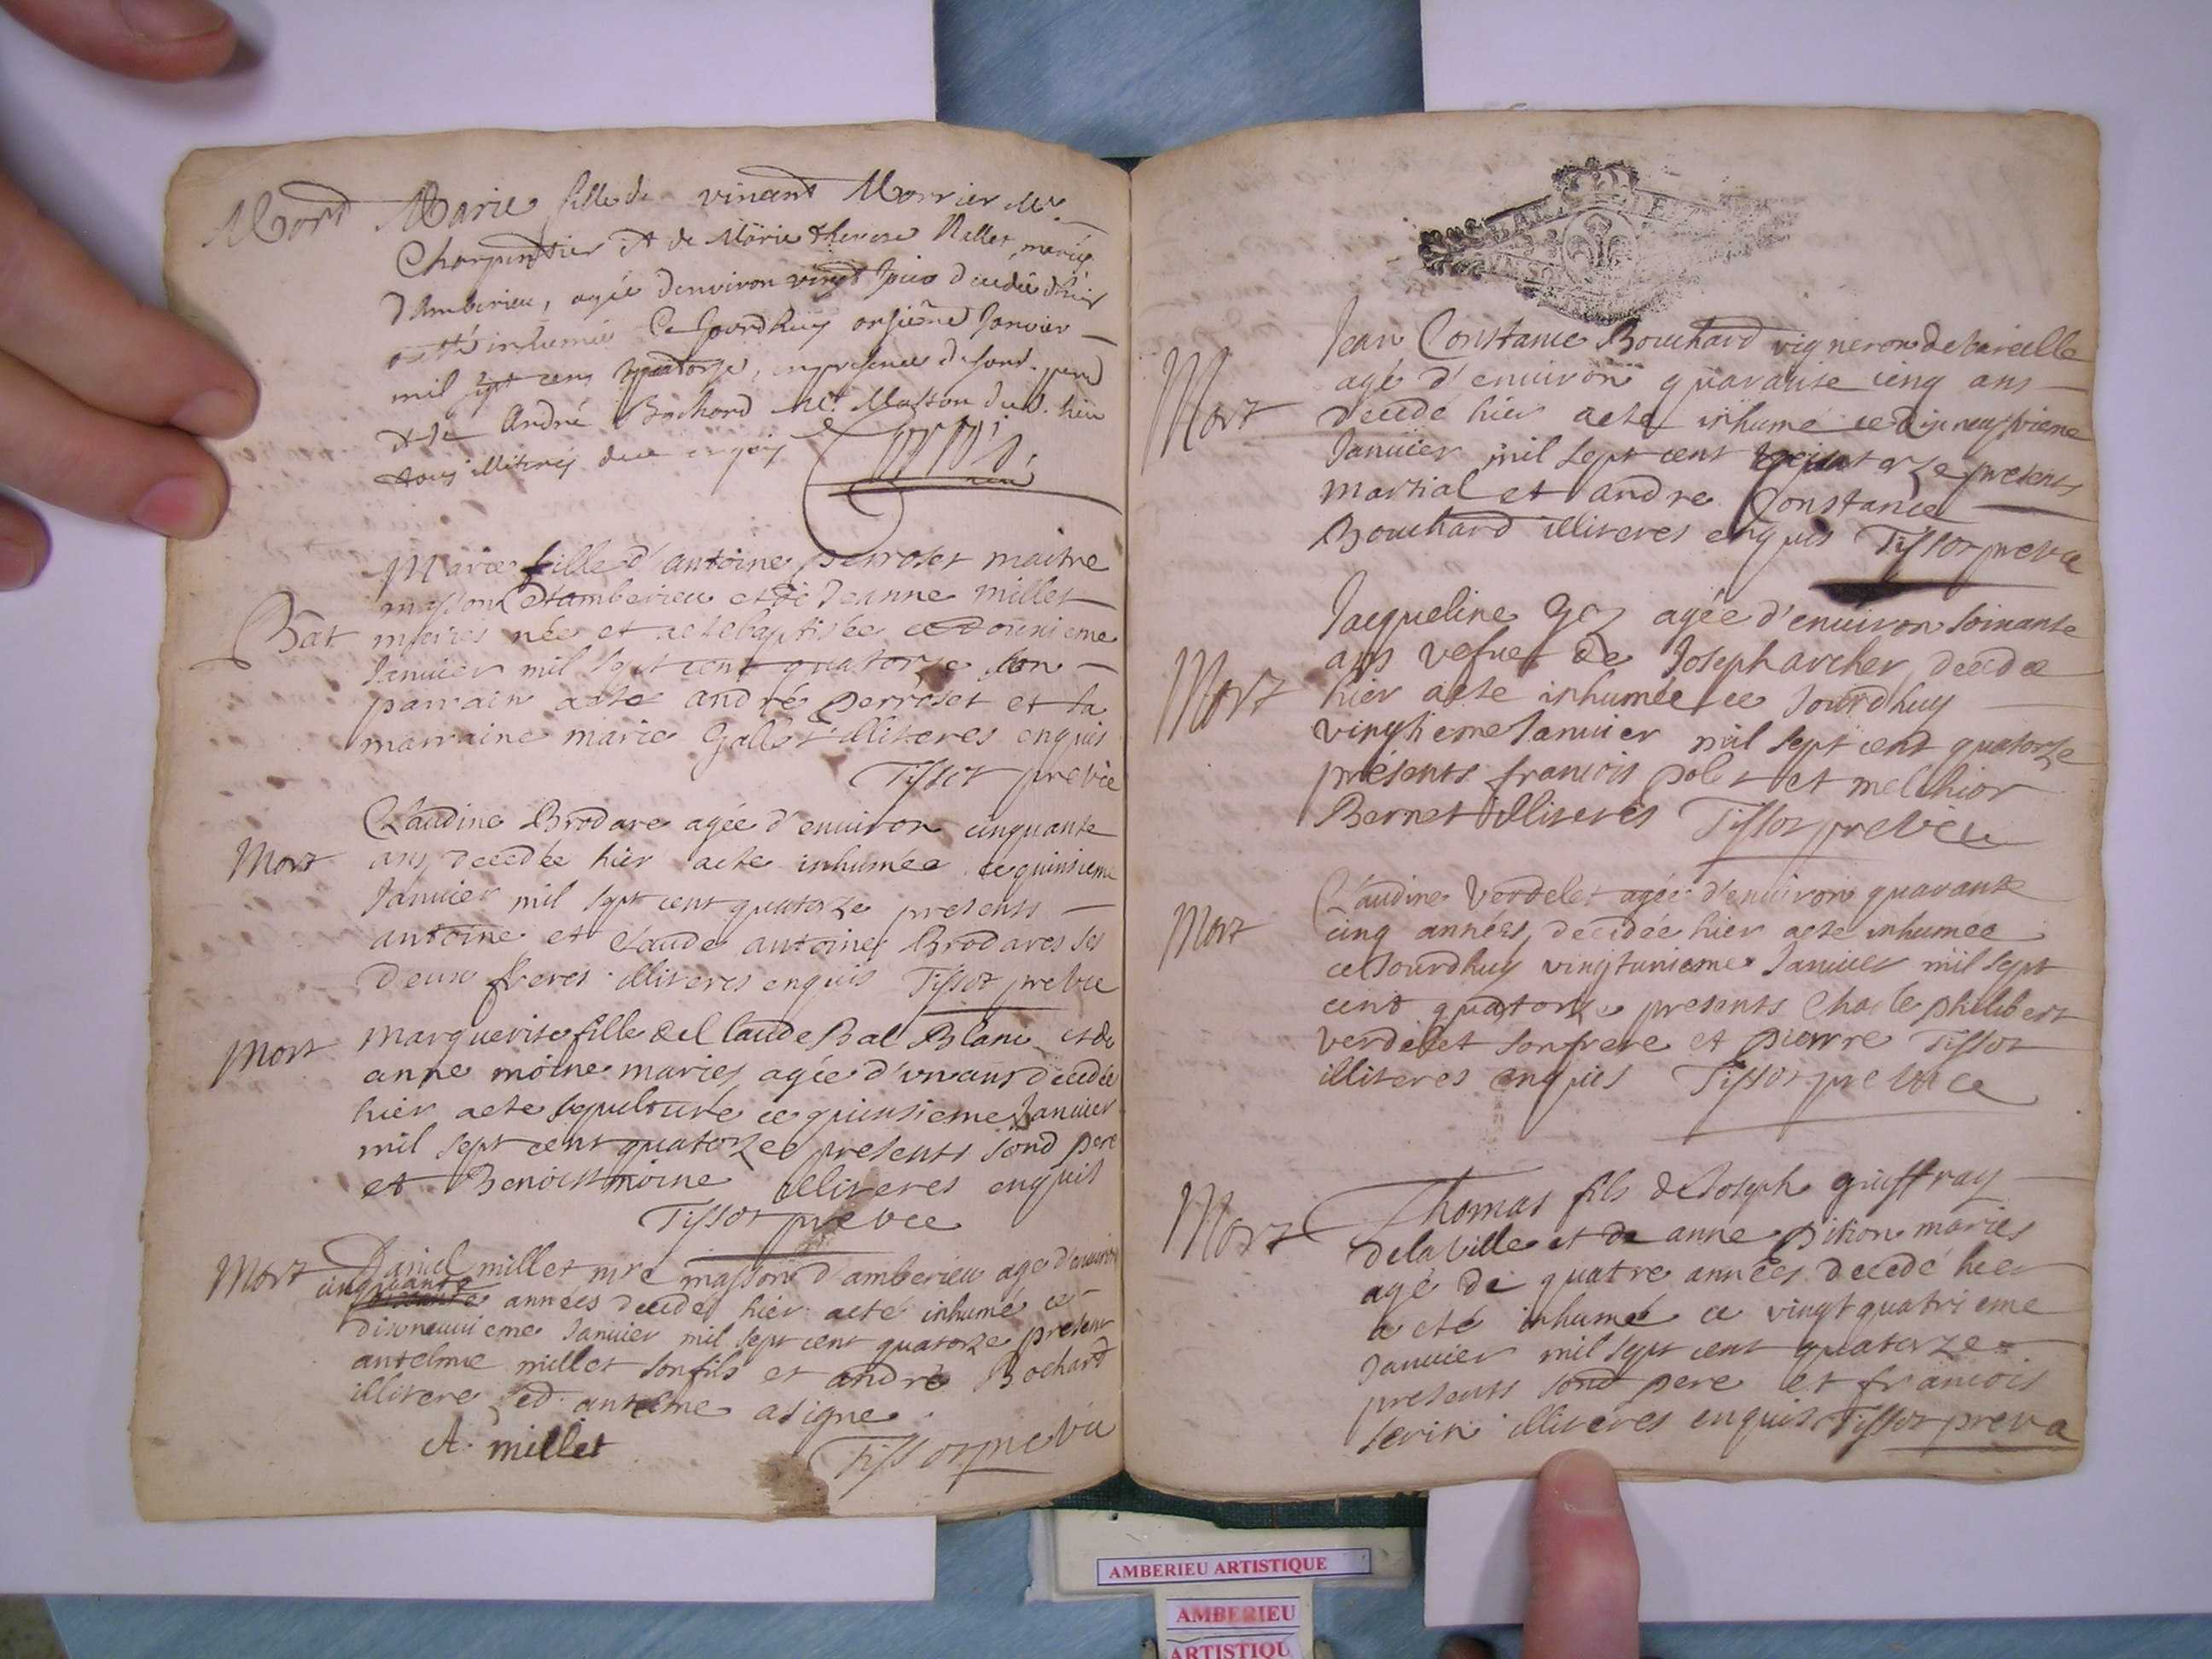 Mort Marie fille de vincent Morrier Mre
Charpentier et de Marie therese Rallet mariés
d'Amberieu, agée d'environ vingt jours decedée d'hier
a esté inhumée ce jourd'huy onzieme Janvier
mil sept cens quatorze, en presence de sond. pere
et de André Bochard Me Masson dud. lieu
tous illiterés de ce enquis
Marie fille d'antoine perroset maitre
masson d'amberieu et de Jeanne millet
Bat mariés née et acte baptisée ce douzieme
Januier mil sept cent quatorze son
parrain acte andré perroset et sa
marraine marie Gallet illiteres enquis
Tissot prevce
Claudine Brodare agée d'enuiron cinquante
Mort ans decedée hier acte inhumée ce quinsieme
Januier mil sept cent quatorze presents
antoine et claude antoine Brodares ses
deux freres illiteres enquis Tissot prevce
Mort marguerite fille de Claude Bal Blanc et de
anne moine mariés agée d'un ans decedée
hier acte sepulturé ce quinsieme Januier
mil sept cent quatorze presents sond pere
et Benoist moine illiteres enquis
Tissot prevce
Mort Daniel millet mre masson d'amberieu agé d'enuiron
cinquante années decedé hier acté inhumé ce
dixneuuieme Januier mil sept cent quatorze present
antelme millet son fils et andré Bochard
illitere led. antelme a signe
A. millet Tissot prevce
Jean Constance Bouchard vigneron de
agé d'enuiron quarante cinq ans
Mort decedé hier acte inhumé ce dixneufvieme
Januier mil sept cent presents
martial et andre Constance
Bouchard illiteres enquis Tissot prevce
Jacqueline Goz agée d'enuiron soixante
ans vefue de Joseph archer decedee
Mort hier acte inhumée ce Jourdhuy
vingtieme Januier mil sept cent quatorze
présents francois polet et melchior
Bernet illiteres Tissot prevce
Claudine Verdelet agée d'enuiron quarante
Mort cinq années, decedée hier acte inhumée
ce Jourdhuy vingtunieme Januier mil sept
cent quatorze presents Charle philibert
verdelet son frere et pierre Tissot
illiteres enquis Tissot prevce
Thomas fils de Joseph guiffray
Mort de la ville et de anne pition mariés
agé de quatre années decedé hier
a eté inhumé ce vingtquatrieme
Januier mil sept cent quatorze
presents sond pere et francois
serin illiteres enquis Tissot prevce
AMBERIEU ARTISTIQUE
AMBERIEU
ARTISTIQU